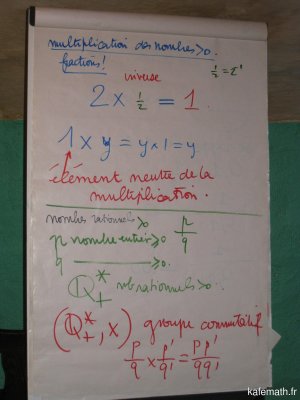 multiplication des nombres >0.
fractions!
inverse
½ = 2⁻¹
2 × ½ = 1
1 × y = y × 1 = y
élément neutre de la
multiplication.
nombres rationnels ≥0 p/q
p nombre entier ≥0
q ———— >0.
ℚ*₊ nb rationnels >0.
(ℚ*₊, ×) groupe commutatif
p/q × p'/q' = pp'/qq'
kafemath.fr